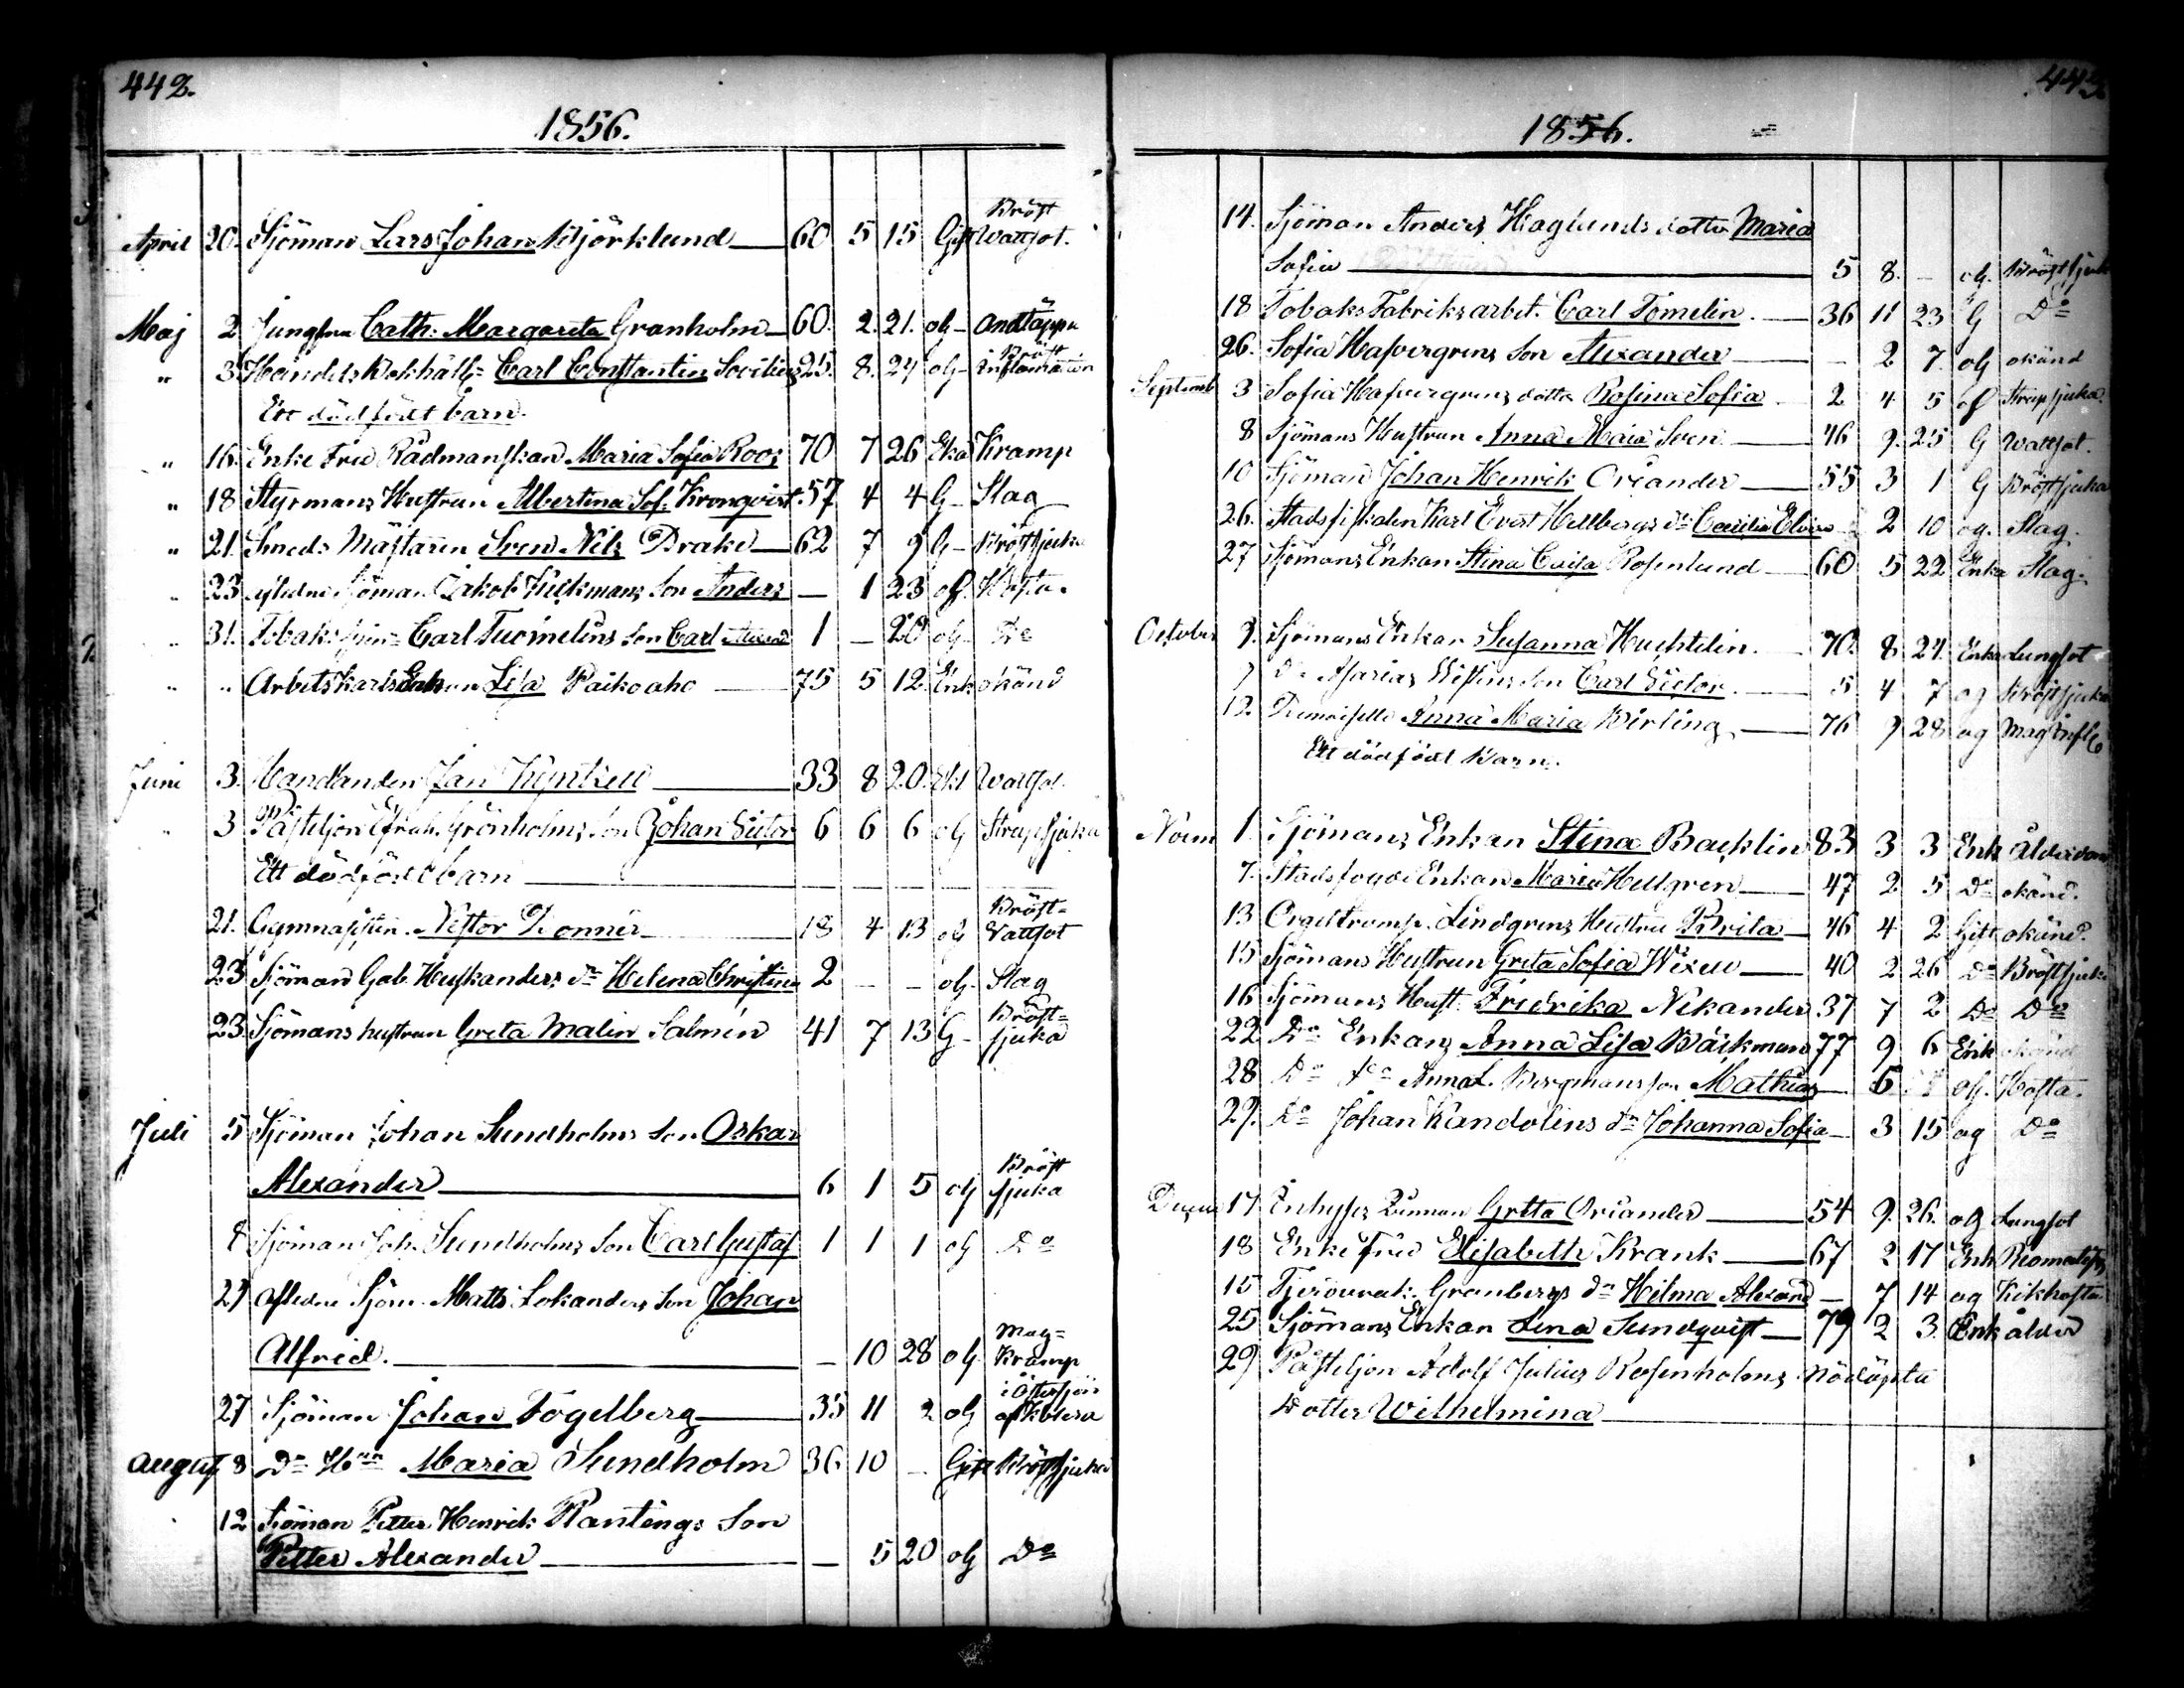 442.
1856.
April 20. Sjöman Lars Johan Björklund 60 5 15 Gift Bröst Wattsot.
Maj 2 Jungfrun Cath: Margareta Granholm 60. 2. 21. og Andtäppa
" 3 Handels Bokhåll= Carl Constantin 25. 8. 24 og Bröst inflamation
Ett dödfödt barn.
" 16. Enke Fru Rådmanskan Maria Sofia Roos 70 7 26 Eka Kramp
" 18 Styrmans Hustrun Albertina Sof. Kronqvist. 57 4 4 G Slag
" 21. Smeds Mästaren Sven Nils Drake 62 7 9 G Bröstsjuka
" 23 aflidne Sjöman Jakob son Anders — 1 23 og. Hosta.
" 31. Tobaks Carl Tuomelins son Carl 1 — 20 og Do
" " Arbetskarls Enkan Lisa Paikoaho 75 5 12 Enk okänd
Juni 3. Handlanden Jan 33 8 20. Ekl Wattsot.
" 3 Påsteljon Grönholms son Johan Victor 6 6 6 og Strupsjuka
Ett dödfödt barn
21. Gymnasisten Nestor Donnér 18 4 13 og Bröst= Vattsot
23 Sjöman Gab. dr Helena Christina 2 — — og Slag
23 Sjömans hustrun Greta Malin Salmén 41 7 13 G Bröst= sjuka
Juli 5 Sjöman Johan Sundholms son Oskar
Alexander 6 1 5 og Bröst sjuka
8 Sjöman Joh. Sundholms son Carl Gustaf 1 1 1 og Do
27 aflidne Sjöm. Matts Lokanders son Johan
Alfrid. — 10 28 og. Mag= Kramp
27 Sjöman Johan Fogelberg 35 11 2 og i Östersjön af Kolera
August 8 Do Hun Maria Sundholm 36 10 — Gift Bröstsjuka
12 Sjöman Petter Henrik Plantings son
Petter Alexander — 5 20 og Do
443
1856.
14. Sjöman Anders Haglunds dotter Maria
Sofia 5 8. — og. Bröstsjuk
18 Tobaks Fabriks arbet. Carl Tömelin. 36 11 23 G Do
26. Sofia Hafvergrens son Alexander — 2 7. og okänd
Septemb 3 Sofia Hafvergrens dotter Rosina Sofia 2 4 5 og Strupsjuka.
8 Sjömans Hustrun Anna Maia Sven 46 9. 25 G Wattsot.
10 Sjöman Johan Henrik Oriander 55 3 1 G Bröstsjuka
26. Stadsfiskalen Karl Evert Hellbergs dr Cecilia 2 10 og. Slag.
27 Sjömans Enkan Stina Caisa Rosenlund 60 5 22 Enka Slag.
October 9. Sjömans Enkan Susanna 70. 8. 24. Enka Lungsot
9 Do Marias son Carl Victor. 5 4 7 og Bröstsjuka
12. Demoiselle Anna Maria Birling 76 9 28 og Mag Infl
Ett dödfödt Barn.
Novem 1. Sjömans Enkan Stina Backlin 83 3 3 Enk Ålderdom
7. Stadsfogde Enkan Maria Hellgren 47 2 5 Do okänd.
13 Orgeltramp. Lindgrens Hustru Brita 46 4 2 Gift okänd.
15 Sjömans Hustrun Greta Sofia 40 2 26 Do Bröstsjuk
16 Sjömans Hust. Fredrika Nikander 37 7 2 Do Do
22 Do Enkan Anna Lisa Bäckman 77 9 6 Enk okänd
28 Do Do Anna L. Bergmans son Mathias 6 og. Hosta.
29. Do Johan Randolins dr Johanna Sofia — 3 15 og Do
17 Inhyses Qvinnan Gretta Oriander 54 9. 26. og Lungsot
18 Enke Fru Elisabeth Krank 67 2 17 Enk
15 Granbergs dr Hilma Alexand — 7 14 og Kikhosta
25 Sjömans Enkan Lena Sundqvist 79 2 3. Enk ålder
29 Påsteljon Adolf Julius Rosenholms nödöpta
Dotter Wilhelmina